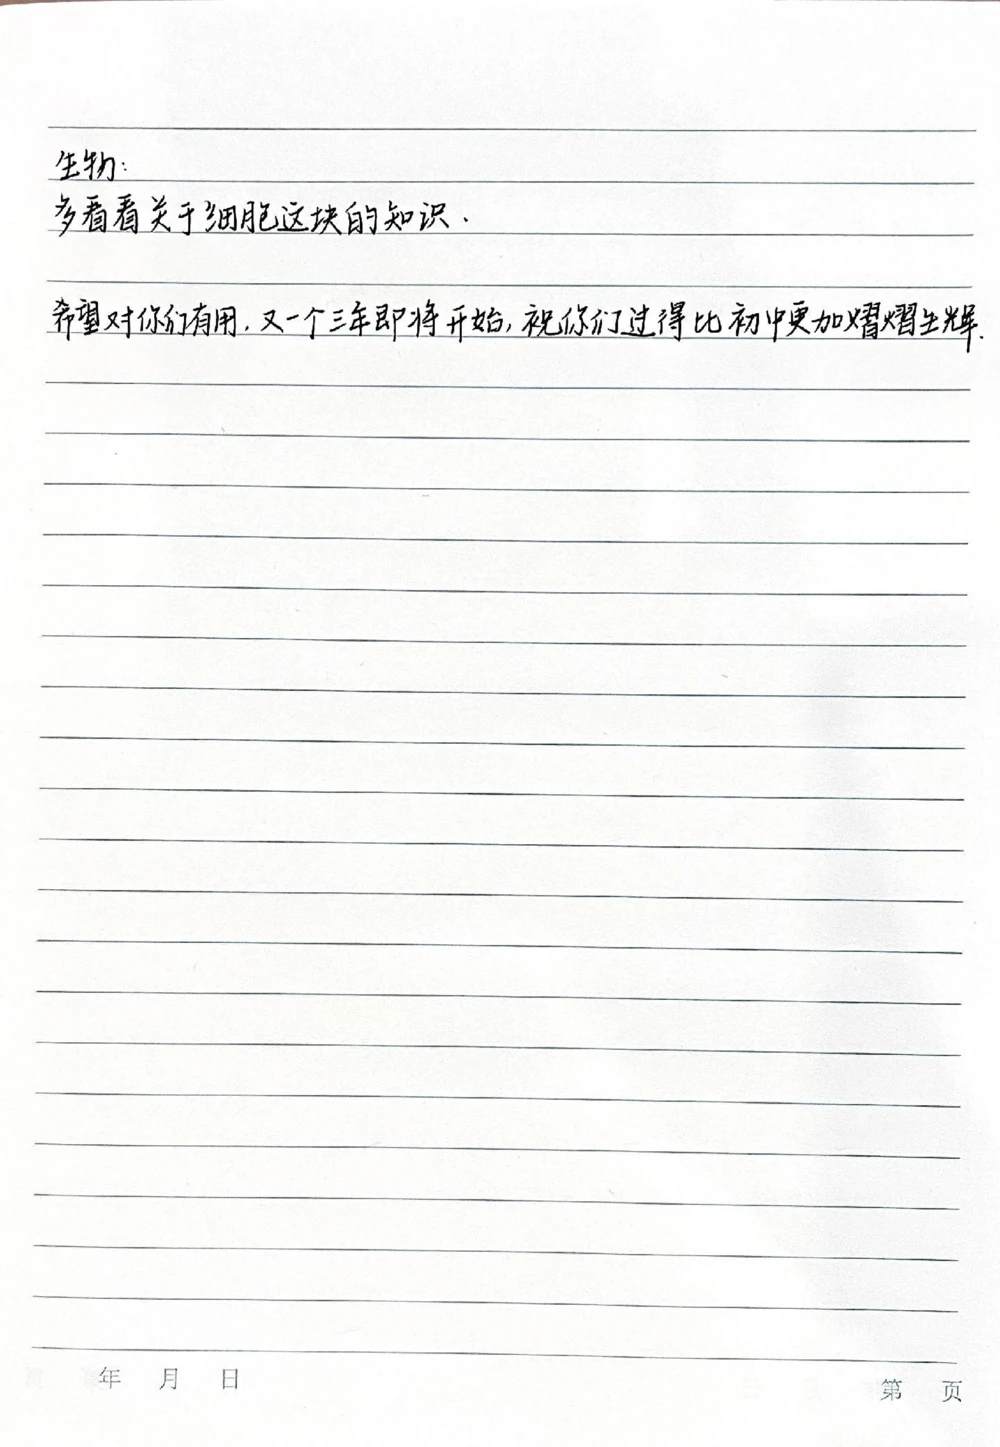 生物:
多看看关于细胞这块的知识.
希望对你们有用.又一个三年即将开始,祝你们过得比初中更加熠熠生辉.
年 月 日
第 页